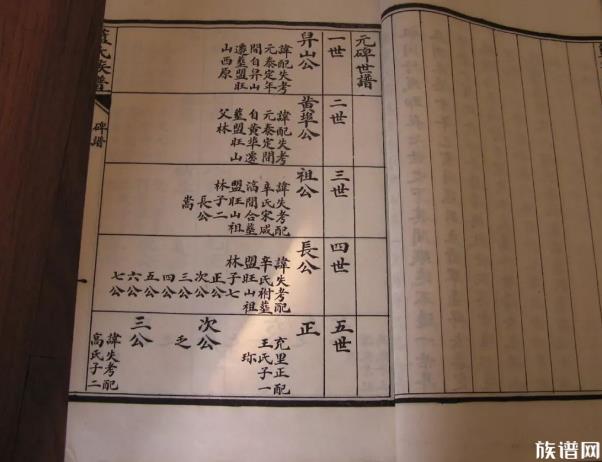 元碑世譜
一世
昇山公
諱配失考
元泰定年
間自昇山
遷墓盟旺
山西原
二世
黄埠公
諱配失考
元泰定間
自黄埠遷
墓盟旺山
父林
三世
祖公
諱失考配
辛氏宋咸
淳間合墓
盟旺山祖
林子二
長公
嵩
四世
長公
諱失考配
辛氏祔墓
盟旺山祖
林子七
正公
次公
三公
四公
五公
六公
七公
五世
正
充里正配
王氏子一
珎
次公
乏
三公
諱失考配
高氏子二
氏族譜
碑譜
一
族谱网